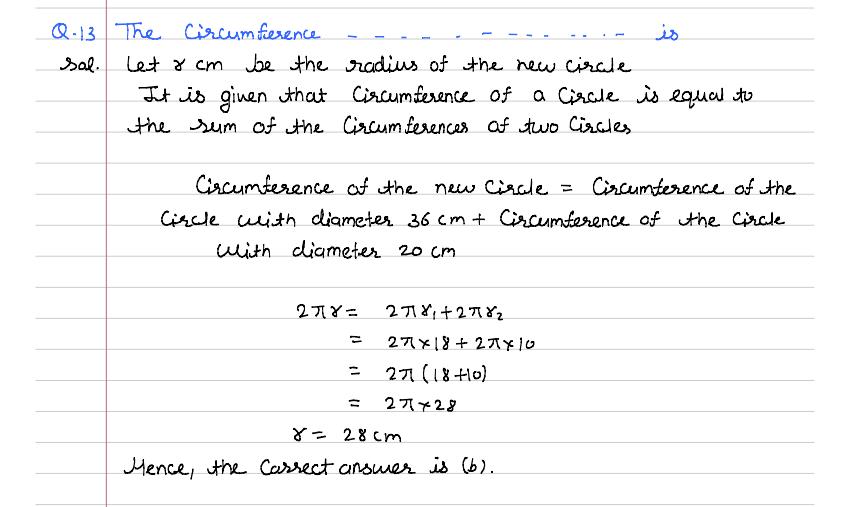 Q.13 The Circumference - - - - . - - - - . - . . - is
Sol. Let r cm be the radius of the new circle
It is given that Circumference of a Circle is equal to
the sum of the Circumferences of two Circles
Circumference of the new Circle = Circumference of the
Circle with diameter 36 cm + Circumference of the Circle
With diameter 20 cm
2πr = 2πr₁ + 2πr₂
= 2π×18 + 2π×10
= 2π (18+10)
= 2π×28
r = 28 cm
Hence, the Correct answer is (b).